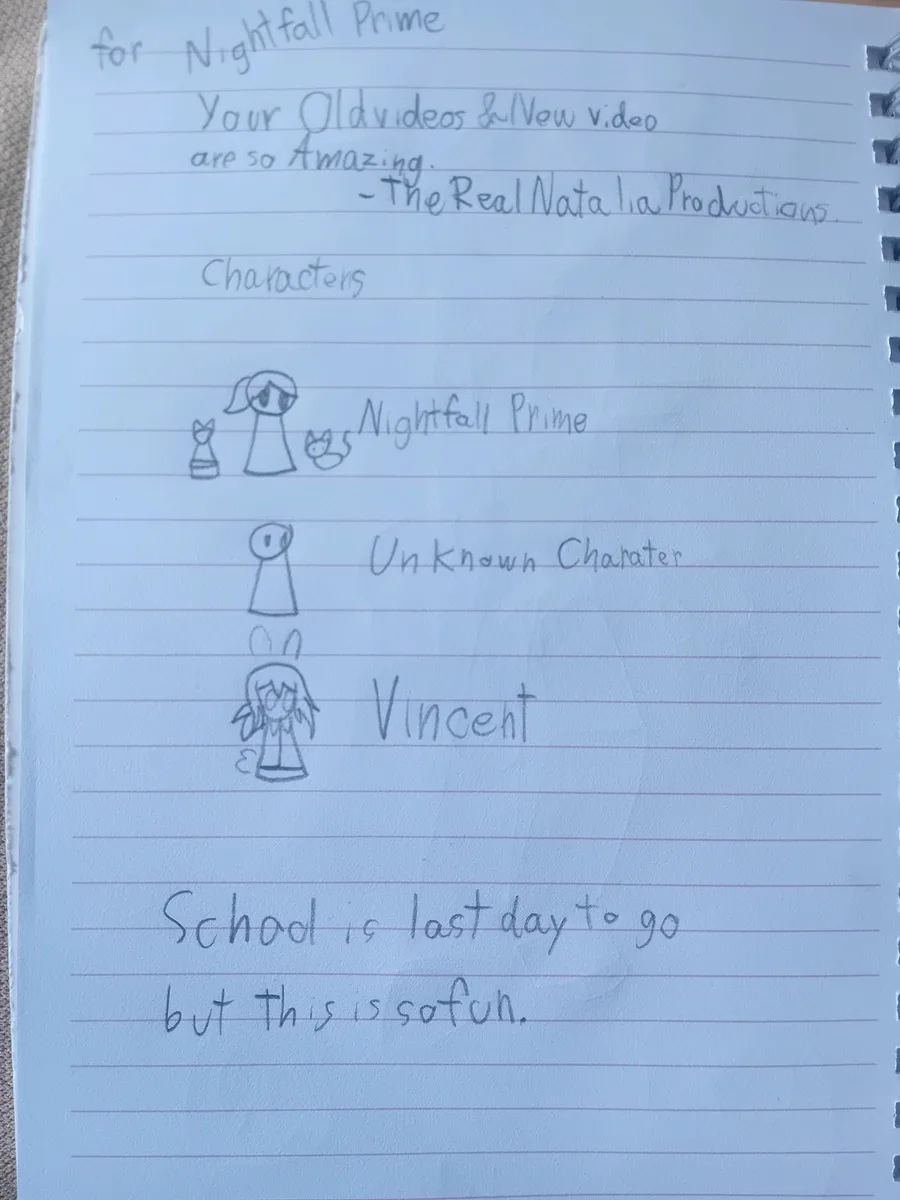 for Nightfall Prime
Your Old videos & New video
are so Amazing.
-The Real Natalia Productions.
Characters
Nightfall Prime
Unknown Charater
Vincent
School is last day to go
but this is so fun.